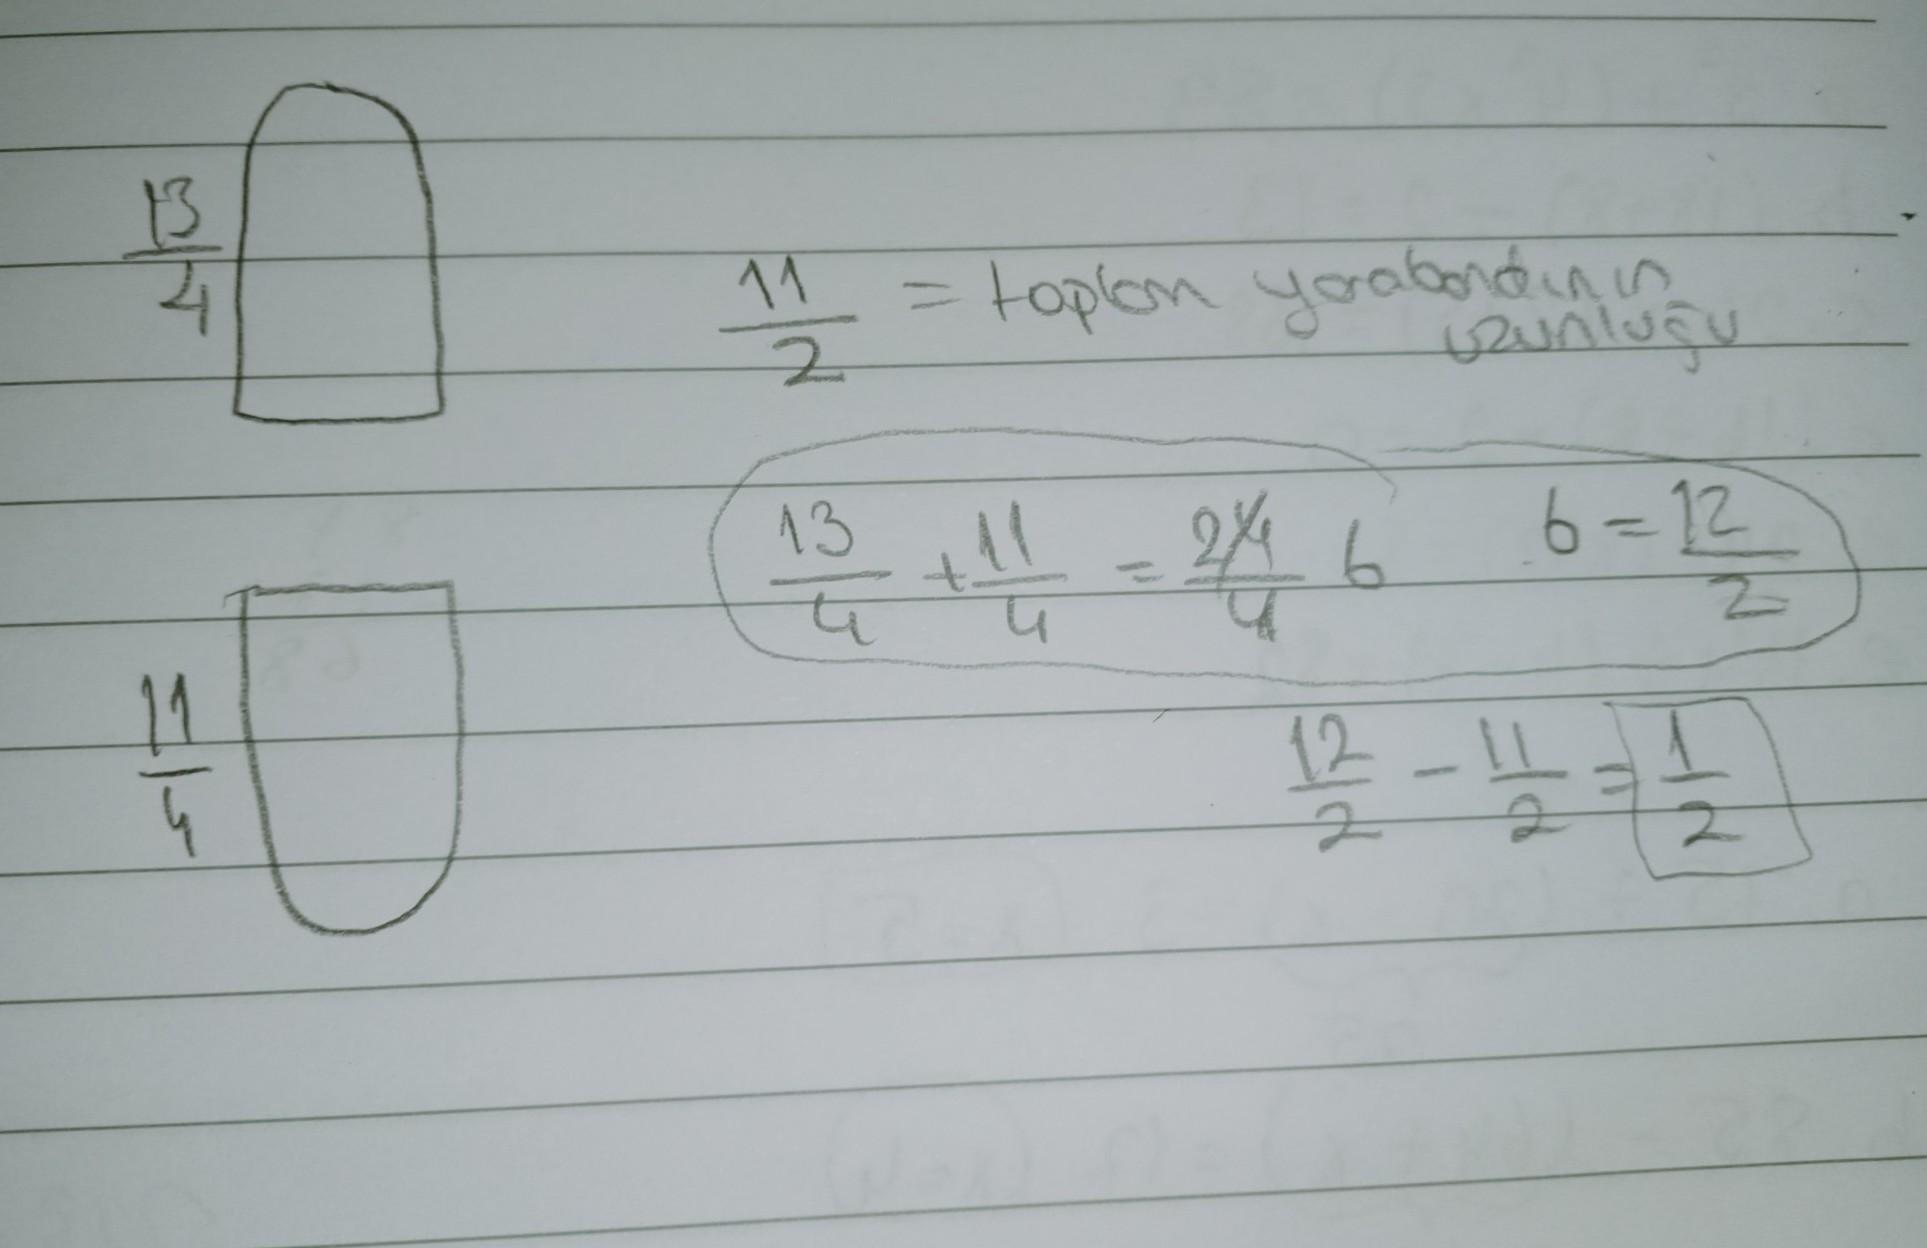 13/4
11/2 = toplam yarabandının
uzunluğu
13/4 + 11/4 = 24/4 6 6 = 12/2
11/4
12/2 - 11/2 = 1/2